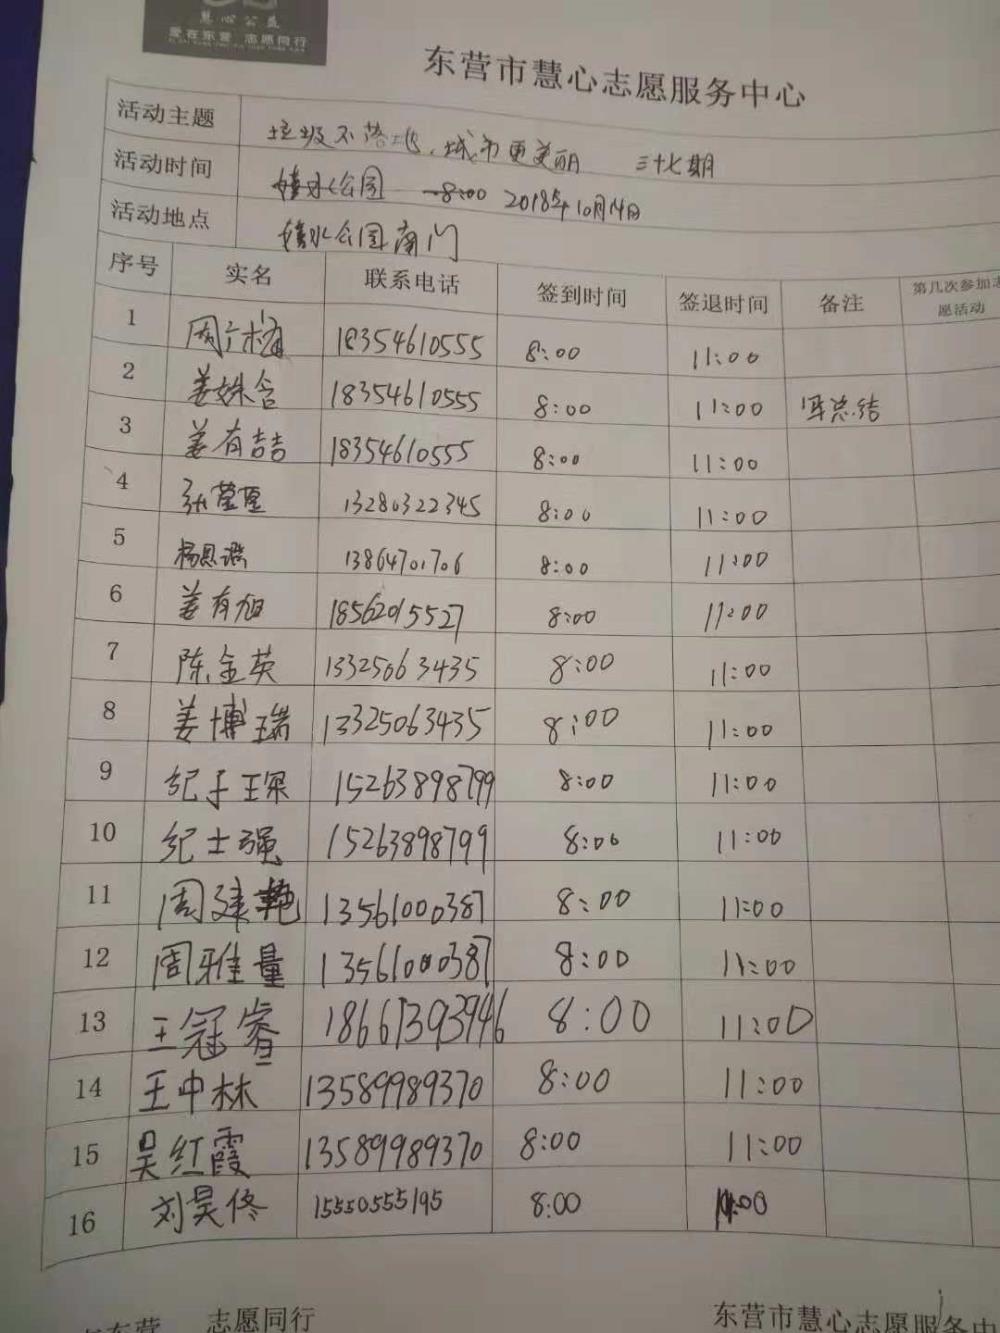 慧心公益
爱在东营 志愿同行
东营市慧心志愿服务中心
活动主题 垃圾不落地,城市更美丽 三十七期
活动时间 8:00 2018年10月14日
活动地点 清水公园南门
序号 实名 联系电话 签到时间 签退时间 备注 第几次参加志愿活动
1 周广梅 18354610555 8:00 11:00
2 姜姝含 18354610555 8:00 11:00 写总结
3 姜有喆 18354610555 8:00 11:00
4 张莹莹 13280322345 8:00 11:00
5 杨恩 13864701706 8:00 11:00
6 姜有旭 18562015527 8:00 11:00
7 陈金英 13325063435 8:00 11:00
8 姜博瑞 13325063435 8:00 11:00
9 纪子琛 15263898799 8:00 11:00
10 纪士强 15263898799 8:00 11:00
11 周建艳 13561000387 8:00 11:00
12 周雅量 13561000387 8:00 11:00
13 王冠睿 18661393946 8:00 11:00
14 王中林 13589989370 8:00 11:00
15 吴红霞 13589989370 8:00 11:00
16 刘昊佟 15550555195 8:00 11:00
在东营 志愿同行 东营市慧心志愿服务中